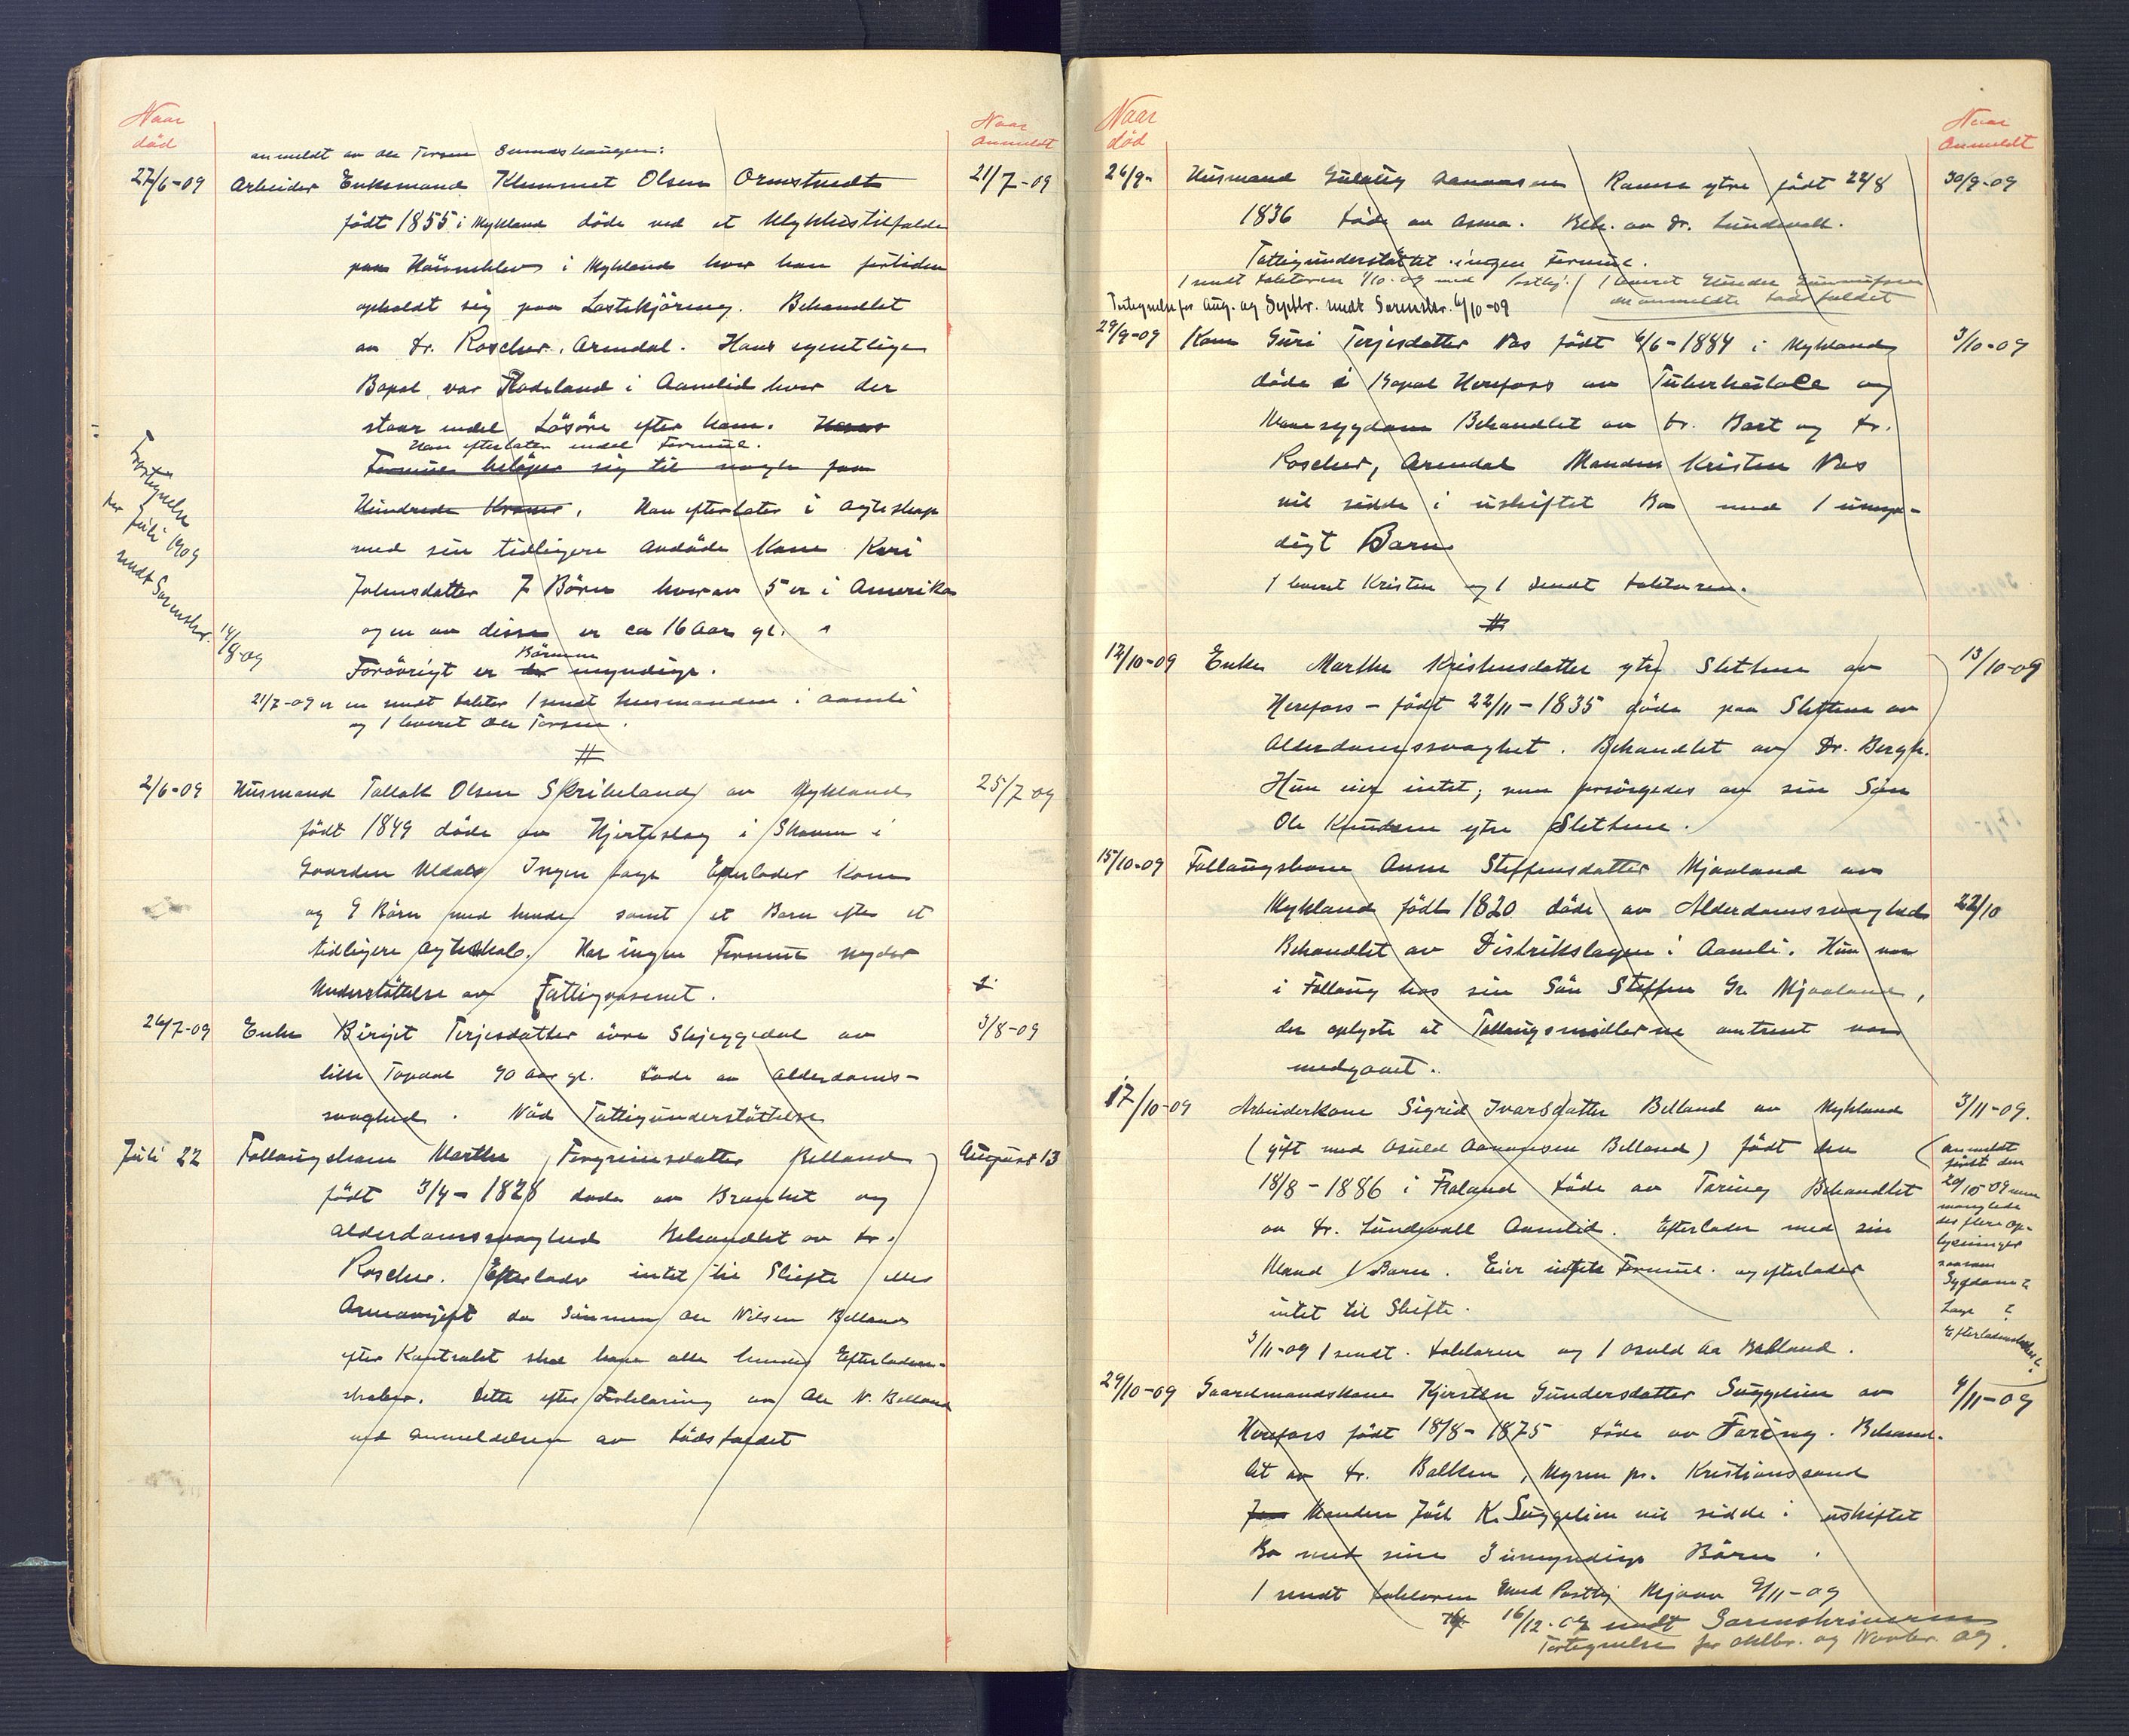 Naar
död
Naar
Anmeldt
anmeldt av Ole Tersen
27/6-09 Arbeider Enkemand Klemmet Olsen Ormstvedt 21/7-09
født 1855 i Mykland döde ved et Ulykkestilfælde
paa i Mykland hvor han fortiden
opholdt sig paa Lastekjöring. Behandlet
av Dr. Roscher, Arendal. Hans egentlige
Bopæl var i Aamlid hvor der
staar endel Lösöre efter ham. Hans
Han efterlater endel Formue.
Formue belöper sig til nogle faa
Hundrede Kroner. Han efterlater i Ægteskap
med sin tidligere avdöde Kone Kari
Johnsdatter 7 Börn hvorav 5 er i Amerika
og en av disse er ca 16 Aar gl.
Börnene
Forövrigt er de myndige.
21/7-09 er en sendt Doktor 1 sendt Lensmanden i Aamli
og 1 leveret Ole Tersen.
Fortegnelse
for Juli 1909
sendt Sorenskr.
14/8-09
2/6-09 Husmand Tallak Olsen Skribeland av Mykland 25/7 09
født 1849 döde av Hjerteslag i Skoven i
Gaarden Uldal Ingen Læge Efterlader Kone
og 9 Börn med hende samt et Barn efter et
tidligere Ægteskab. Har ingen Formue nyder
Understöttelse av Fattigvæsenet.
26/7-09 Enke Birgit Terjesdatter övre Skjeggedal av 3/8-09
lille Topdal 90 Aar gl. Döde av Alderdoms-
svaghed. Nöd Fattigunderstöttelse
Juli 22 Follaugskone Marthe Torgrimsdatter Belland August 13
født 3/4-1828 döde av Brandbet og
Alderdomssvaghed Behandlet av Dr.
Roscher. Efterlader intet til Skifte eller
Arveavgift da Sönnen Ole Nilsen Belland
efter Kontrakt skal have alle hendes Efterladen-
skaber. Dette efter Forklaring av Ole N. Belland
ved Anmeldelsen av Dödsfaldet
Naar
död
Naar
Anmeldt
26/9- Husmand Aanonsen Ramse ytre født 22/8 30/9-09
1836 Döde av Asma. Beh. av Dr. Lundevall.
Fattigunderstöttet ingen Formue.
1 sendt Doktoren 1/10-09 med 1 leveret Gunder
der anmeldte Dödsfaldet
Fortegnelse for Aug. og Septbr. sendt Sorenskr. 6/10-09
29/9-09 Kone Guri Terjesdatter Næs født 6/6-1884 i Mykland 3/10-09
döde i Bopæl Herefoss av Tuberkulose og
Mavesygdom Behandlet av Dr. Bast og Dr.
Roscher, Arendal Manden Kristen Næs
vil sidde i uskiftet Bo med 1 umyn-
digt Barn
1 leveret Kristen og 1 sendt Doktoren.
12/10-09 Enke Marthe Kristensdatter ytre Slettene av 13/10-09
Herefoss - født 22/11-1835 döde paa Slettene av
Alderdomssvaghet. Behandlet av Dr. Bergh.
Hun eier intet; men forsörgedes av sin Sön
Ole Knudsen ytre Slettene.
15/10-09 Follaugskone Anne Steffensdatter Mjaaland av
Mykland født 1820 döde av Alderdomssvaghed 22/10
Behandlet av Distrikslægen i Aamli. Hun var
i Follaug hos sin Sön Steffen Gr. Mjaaland,
der oplyste at Follaugsmidlerne omtrent var
medgaaet.
17/10-09 Arbeiderkone Sigrid Ivarsdatter Belland av Mykland 3/11-09.
(gift med Osuld Aanonsen Belland) født den
18/8-1886 i Froland Döde av Tæring Behandlet
av Dr. Lundevall Aamlid. Efterlader med sin
Mand 1 Barn. Eier intet Formue og efterlader
intet til Skifte.
(anmeldt
först den
20/10-09 men
manglede
des flere Op-
lysninger
saasom
Sygdom?
Læge?
Efterladenskaber?
3/11-09 1 sendt Doktoren og 1 Osuld Aa Belland.
29/10-09 Gaardmandskone Kjersten Gundersdatter Suggelien av 9/11-09
Herefoss født 18/8-1875 Döde av Tæring. Behand-
let av Dr. Balken, Myren pr. Kristianssand
Manden Joël K. Suggelien vil sidde i uskiftet
Bo med sine 3 umyndige Börn.
1 sendt Doktoren med Postbg. Mjaav 9/11-09
16/12-09 sendt Sorenskriveren
Fortegnelse for Oktbr. og Novbr. 09.